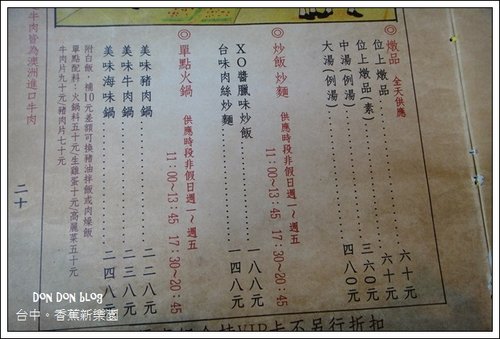 ◎燉品 全天供應
位上燉品……六十元
位上燉品(素)……六十元
中湯(例湯)……三六〇元
大湯(例湯)……四八〇元
◎炒飯炒麵 供應時段非假日週一~週五
11:00~13:45 17:30~20:45
XO醬臘味炒飯……一八八元
台味肉絲炒麵……一四八元
◎單點火鍋 供應時段非假日週一~週五
11:00~13:45 17:30~20:45
美味豬肉鍋……二二八元
美味牛肉鍋……二三八元
美味海味鍋……二四八
附白飯,補10元差額可換豬油拌飯或肉燥飯
單點配料:火鍋料五十元(生雞蛋十元)高麗菜五十元
牛肉片九十元豬肉片七十元
牛肉皆為澳洲進口牛肉
二十
VIP卡不另行折扣
DON DON BLOG
台中。香蕉新樂園